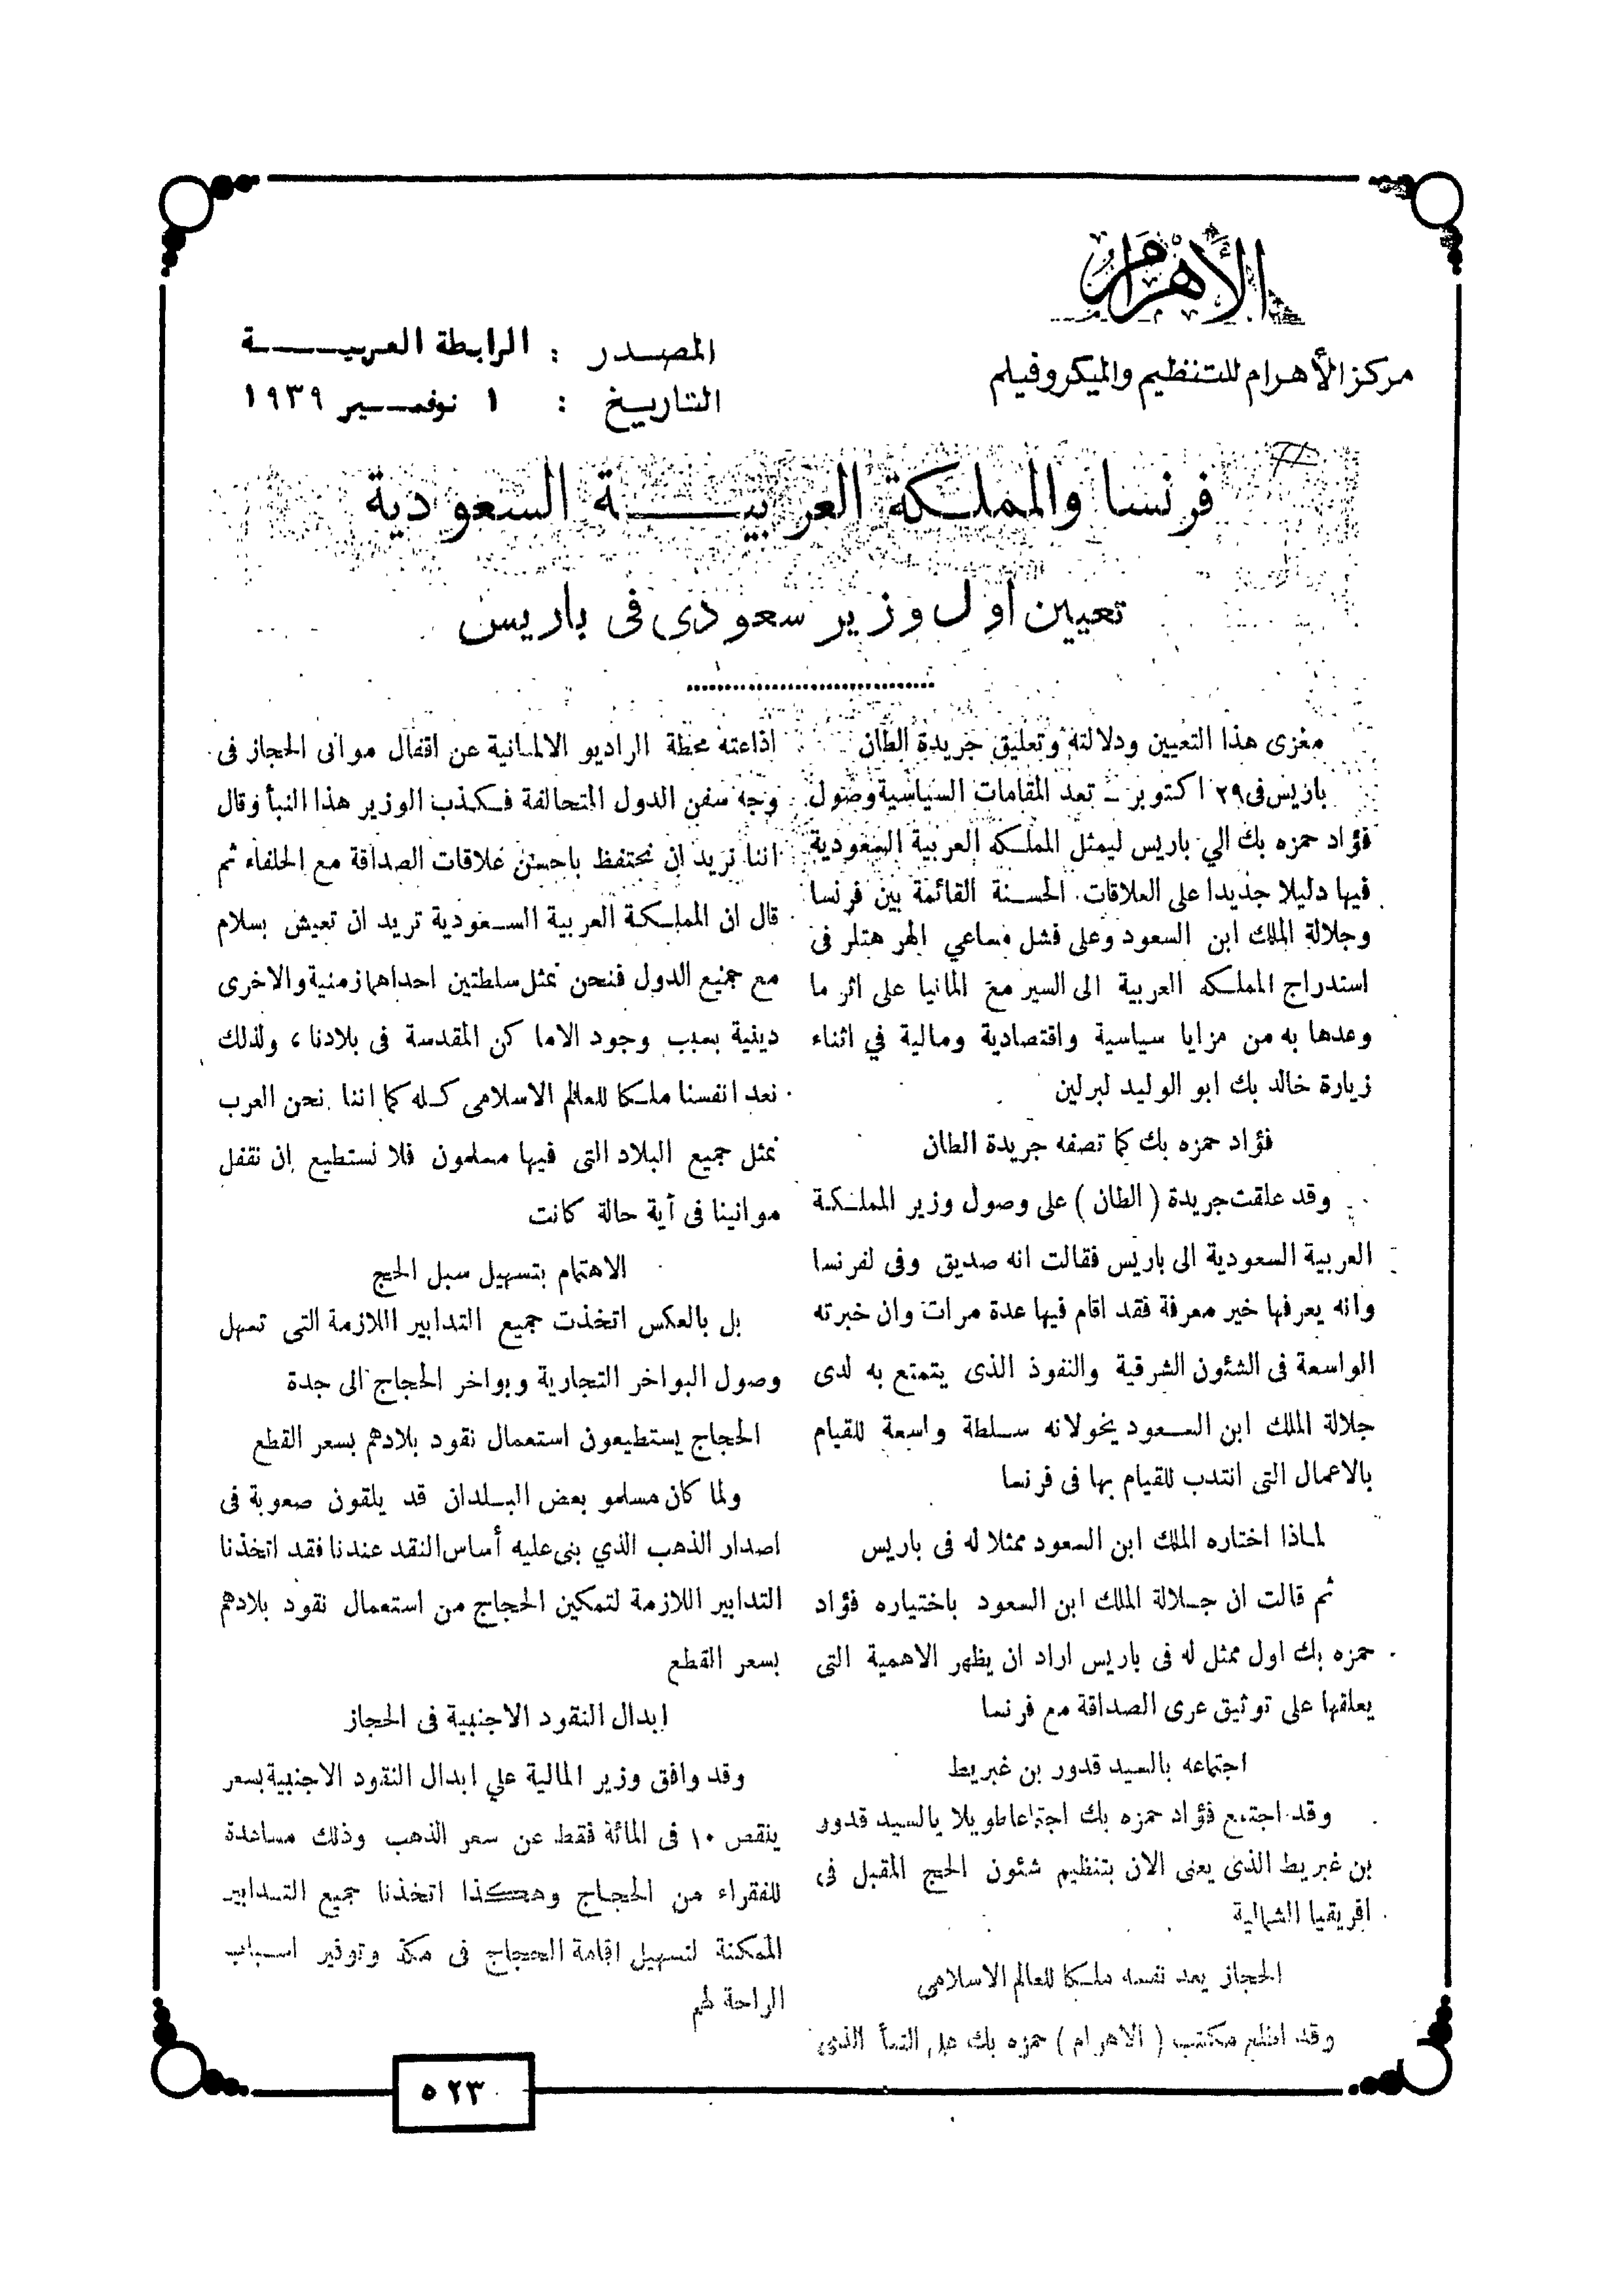 الأهرام
مركز الأهرام للتنظيم والميكروفيلم
المصدر : الرابطة العربية
التاريخ : ١ نوفمبر ١٩٣٩
فرنسا والمملكة العربية السعودية
تعيين أول وزير سعودى فى باريس
مغزى هذا التعيين ودلالته وتعليق جريدة الطان
باريس فى ٢٩ اكتوبر – تعد المقامات السياسية وصول
فؤاد حمزه بك الي باريس ليمثل المملكه العربية السعودية
فيها دليلا جديدا على العلاقات الحسنة القائمة بين فرنسا
وجلالة الملك ابن السعود وعلى فشل مساعي الهر هتلر فى
استدراج المملكه العربية الى السير مع المانيا على اثر ما
وعدها به من مزايا سياسية واقتصادية ومالية في اثناء
زيارة خالد بك ابو الوليد لبرلين
فؤاد حمزه بك كما تصفه جريدة الطان
وقد علقت جريدة ( الطان ) على وصول وزير المملكة
العربية السعودية الى باريس فقالت انه صديق وفى لفرنسا
وانه يعرفها خير معرفة فقد اقام فيها عدة مرات وان خبرته
الواسعة فى الشئون الشرقية والنفوذ الذى يتمتع به لدى
جلالة الملك ابن السعود يخولانه سلطة واسعة للقيام
بالاعمال التى انتدب للقيام بها فى فرنسا
لماذا اختاره الملك ابن السعود ممثلا له فى باريس
ثم قالت ان جلالة الملك ابن السعود باختياره فؤاد
حمزه بك اول ممثل له فى باريس اراد ان يظهر الاهمية التى
يعلقها على توثيق عرى الصداقة مع فرنسا
اجتماعه بالسيد قدور بن غبريط
وقد اجتمع فؤاد حمزه بك اجتماعا طويلا بالسيد قدور
بن غبريط الذى يعنى الان بتنظيم شئون الحج المقبل فى
افريقيا الشمالية
الحجاز يعد نفسه ملكا للعالم الاسلامى
وقد اطلع مكتب ( الاهرام ) حمزه بك على النبأ الذى
اذاعته محطة الراديو الالمانية عن اقفال موانى الحجاز فى
وجه سفن الدول المتحالفة فكذب الوزير هذا النبأ وقال
اننا نريد ان نحتفظ باحسن علاقات الصداقة مع الحلفاء ثم
قال ان المملكة العربية السعودية تريد ان تعيش بسلام
مع جميع الدول فنحن نمثل سلطتين احداهما زمنية والاخرى
دينية بسبب وجود الاماكن المقدسة فى بلادنا ، ولذلك
نعد انفسنا ملكا للعالم الاسلامى كله كما اننا نحن العرب
نمثل جميع البلاد التى فيها مسلمون فلا نستطيع ان نقفل
موانينا فى أية حالة كانت
الاهتمام بتسهيل سبل الحج
بل بالعكس اتخذت جميع التدابير اللازمة التى تسهل
وصول البواخر التجارية وبواخر الحجاج الى جدة
الحجاج يستطيعون استعمال نقود بلادهم بسعر القطع
ولما كان مسلمو بعض البلدان قد يلقون صعوبة فى
اصدار الذهب الذي بنى عليه أساس النقد عندنا فقد اتخذنا
التدابير اللازمة لتمكين الحجاج من استعمال نقود بلادهم
بسعر القطع
ابدال النقود الاجنبية فى الحجاز
وقد وافق وزير المالية علي ابدال النقود الاجنبية بسعر
ينقص ١٠ فى المائة فقط عن سعر الذهب وذلك مساعدة
للفقراء من الحجاج وهكذا اتخذنا جميع التدابير
الممكنة لتسهيل اقامة الحجاج فى مكة وتوفير اسباب
الراحة لهم
٥٢٣